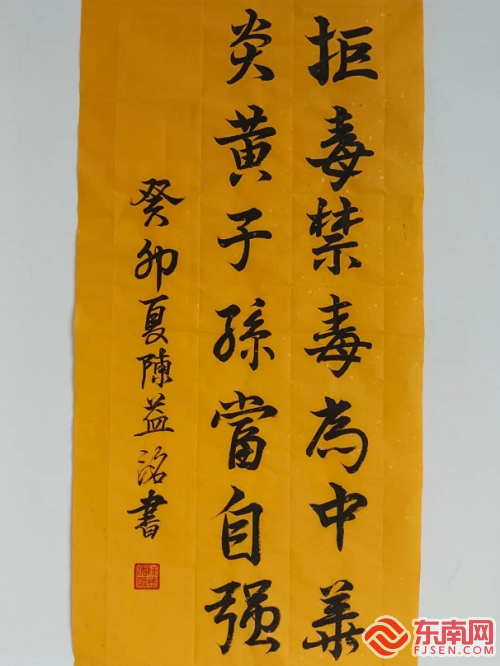 拒毒禁毒為中華
炎黄子孫當自强
癸卯夏陳益銘書
东南网
FJSEN.COM